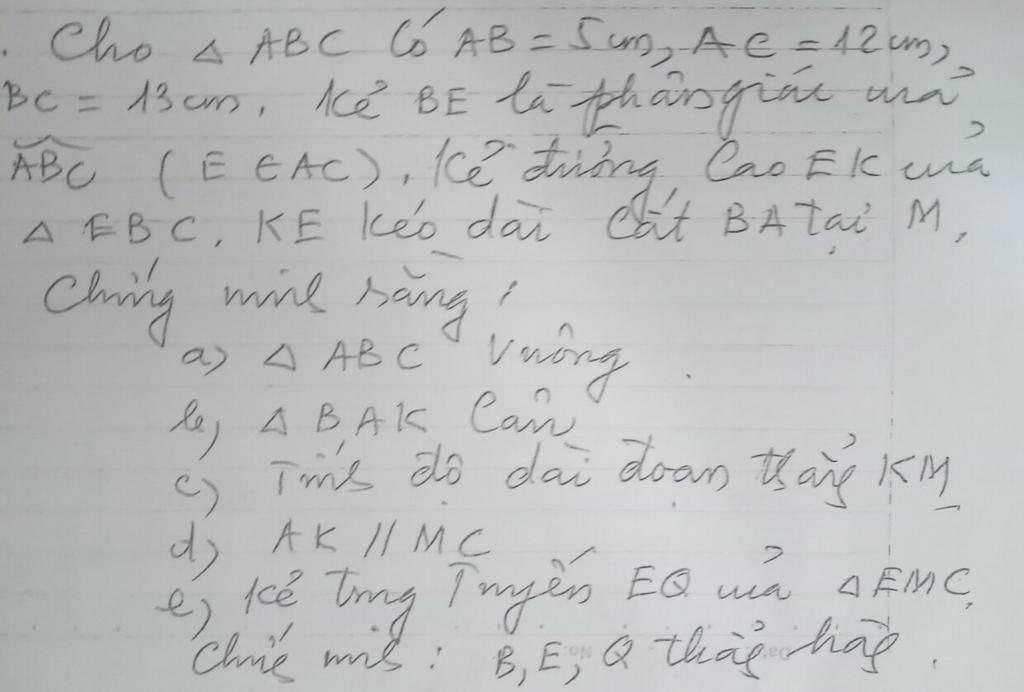 . Cho △ ABC Có AB = 5cm, AC = 12cm,
BC = 13cm. Kẻ BE là phân giác của
ABC ( E ∈ AC ). Kẻ đường Cao EK của
△ EBC. KE kéo dài Cắt BA tại M,
Chứng minh rằng :
a) △ ABC Vuông .
b) △ BAK Cân
c) Tính độ dài đoạn thẳng KM
d) AK // MC
e) Kẻ trung Tuyến EQ của △ EMC.
Chứng minh : B, E, Q thẳng hàng .